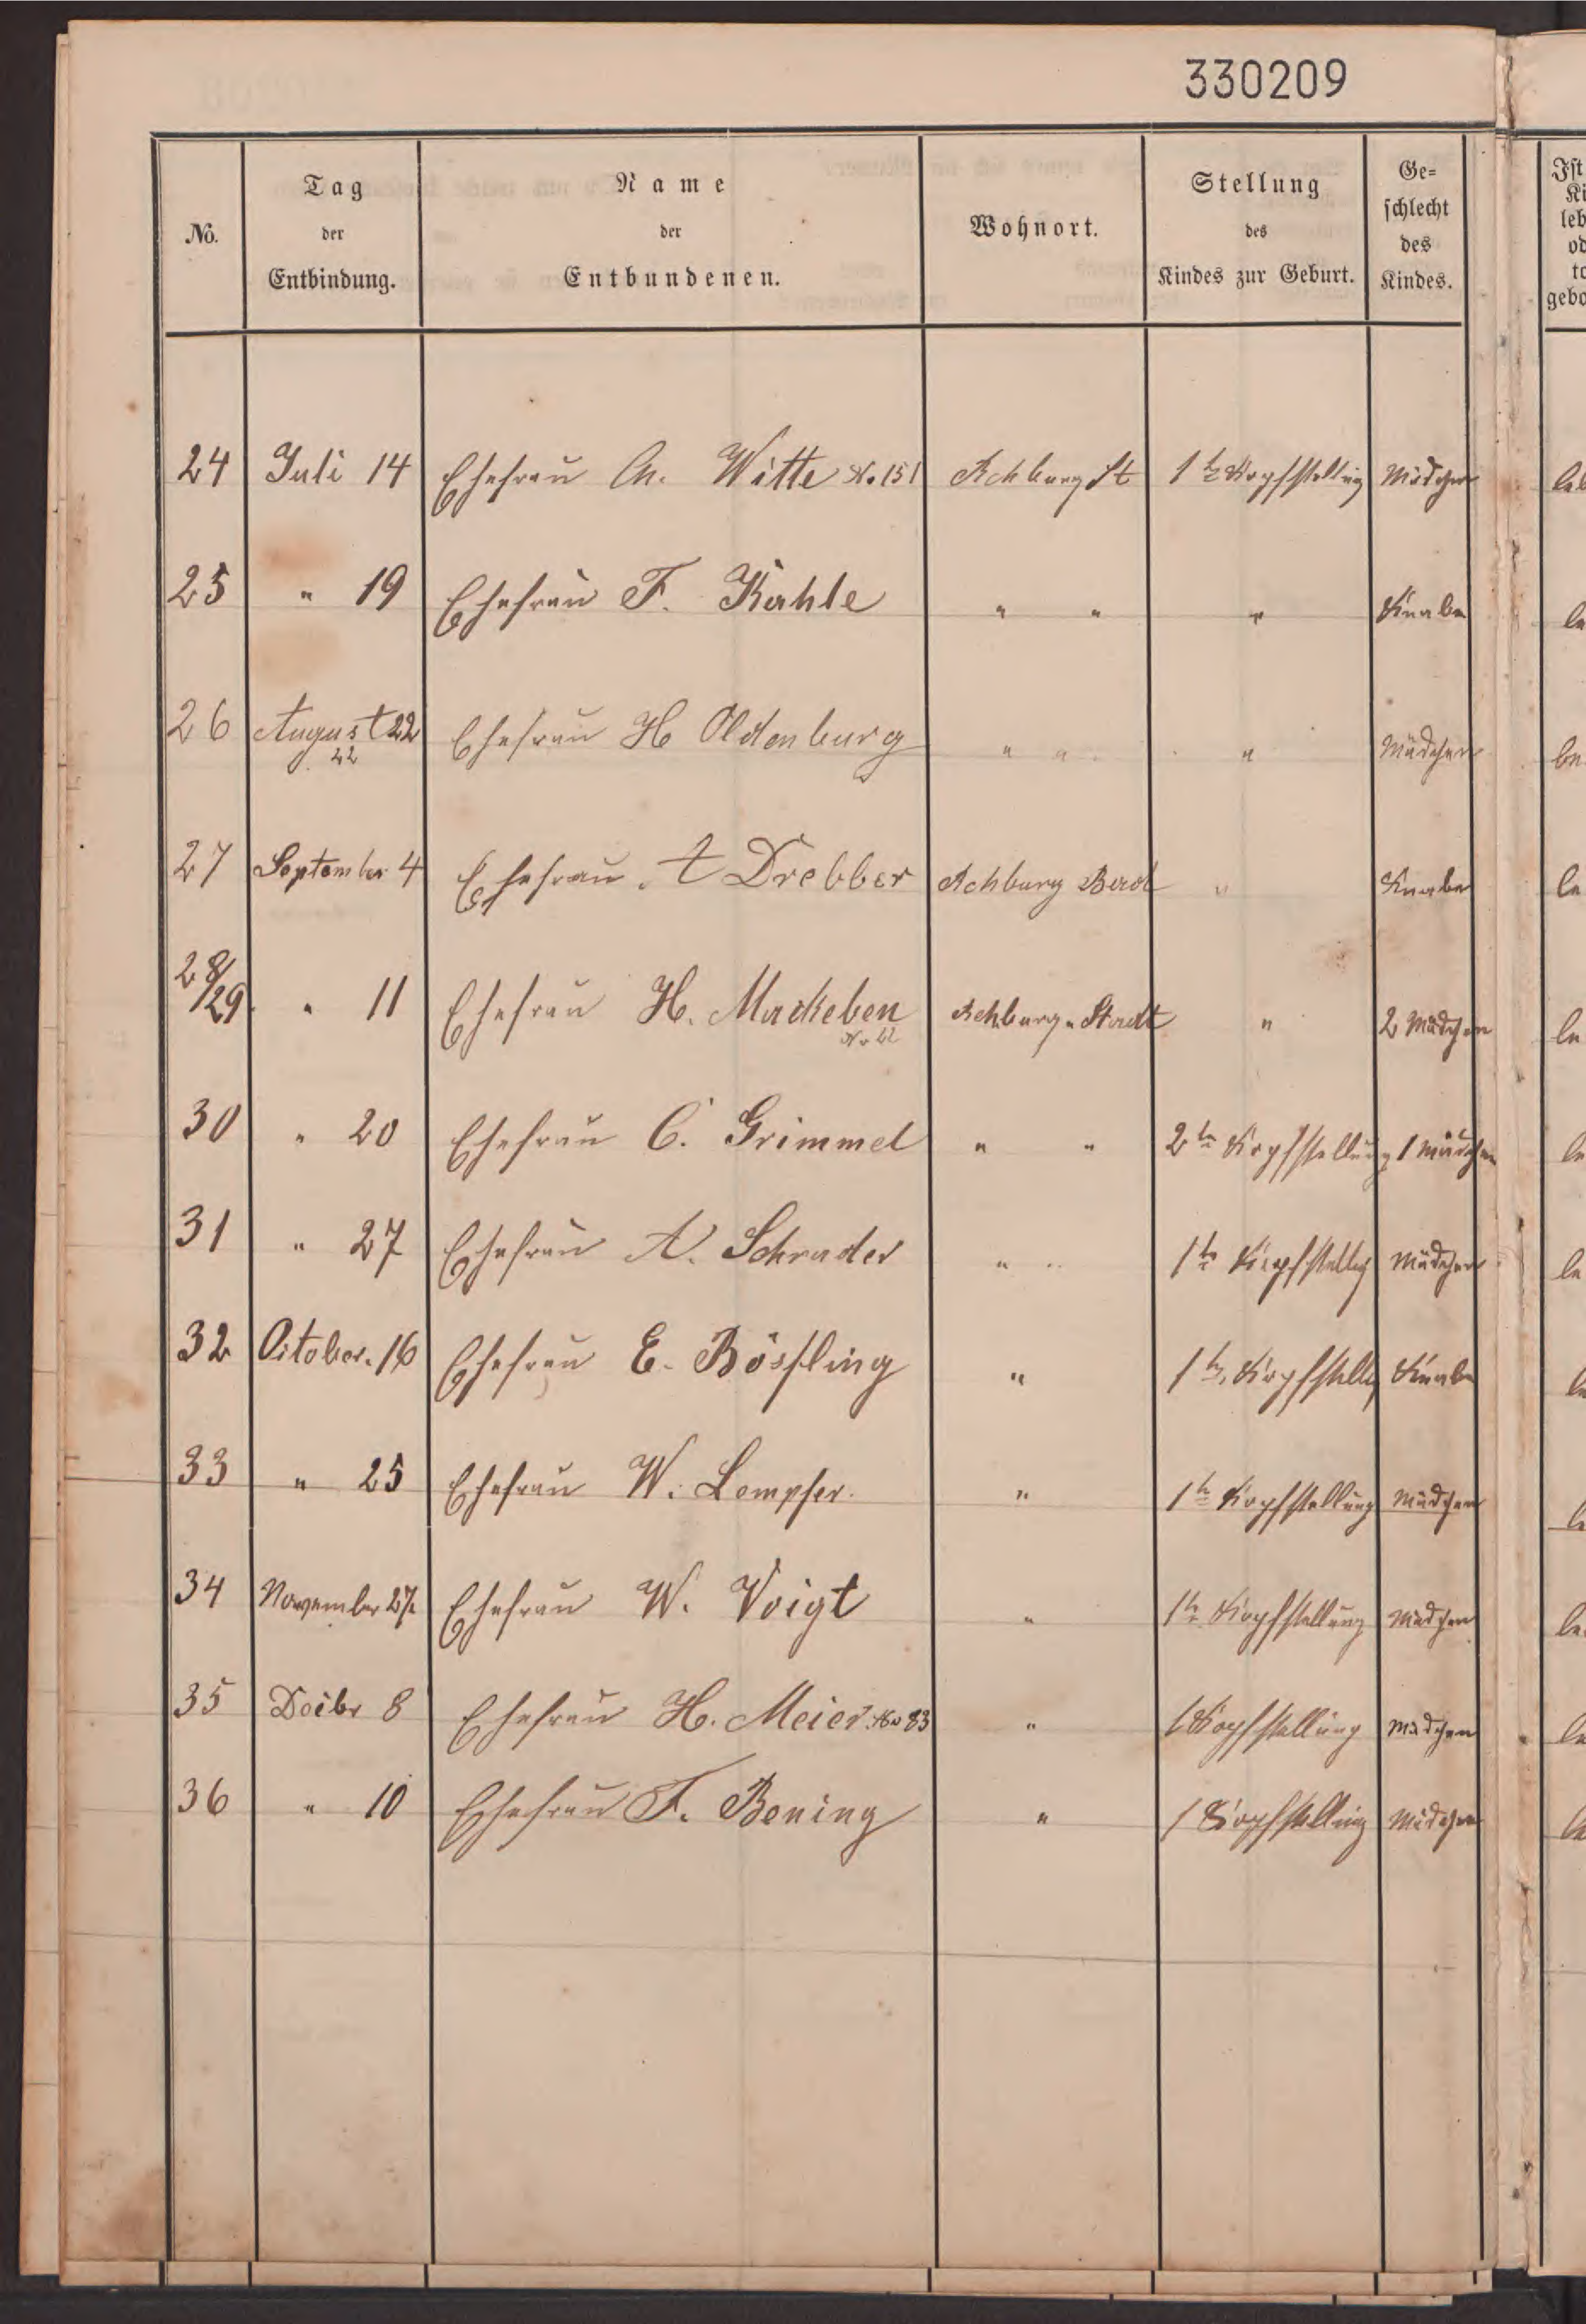 330209
No. Tag der Entbindung. Name der Entbundenen. Wohnort. Stellung des Kindes zur Geburt. Ge=schlecht des Kindes.
24 Juli 14 Ehefrau Witte No. 151 Rehburg St 1te Kopfstellung Mädchen
25 " 19 Ehefrau F. Kahle " " " Knabe
26 August 22 Ehefrau H Oldenburg " " " Mädchen
22
27 September 4 Ehefrau A Drebber Rehburg Bad " Knabe
28/29 " 11 Ehefrau H. Mackeben Rehburg-Stadt " 2 Mädchen
30 " 20 Ehefrau C. Grimmel " " 2te Kopfstellung 1 Mädchen
31 " 27 Ehefrau A. Schrader " " 1te Kopfstellg Mädchen
32 October. 16 Ehefrau E. Bösling " 1te Kopfstellg Knabe
33 " 25 Ehefrau W. Lempfer. " 1te Kopfstellung Mädchen
34 November 27 Ehefrau W. Voigt " 1te Kopfstellung Mädchen
35 Dcibr 8 Ehefrau H. Meier No 83 " 1 Kopfstellung Mädchen
36 " 10 Ehefrau F. Bening " 1 Kopfstellung Mädchen